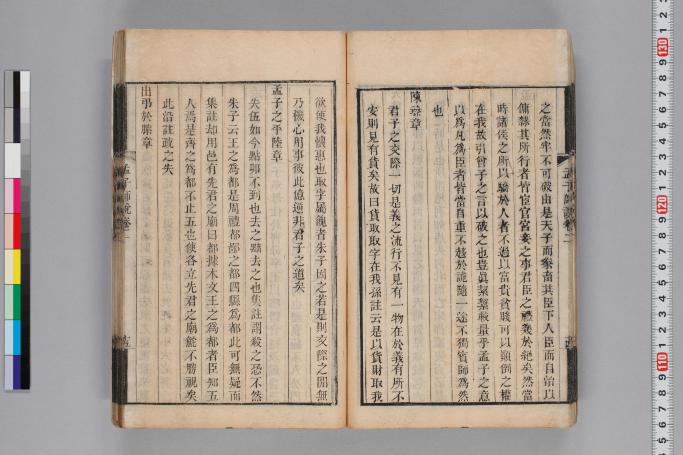 之當然牢不可破由是天子而豢畜其臣下人臣而自治以
傭隸其所行者皆宦官宮妾之事君臣之禮幾於絕矣然當
時諸侯之所以驕於人者不過以富貴貧賤可以顛倒之權
在我故引曾子之言以破之也豈眞絜絜較量乎孟子之意
以爲凡爲臣者皆當自重不趨於詭隨一途不獨賓師爲然
也
陳臻章
君子之交際一切是義之流行不見有一物在於義有所不
安則見有貨矣故曰貨取取字在我孫註云是以貨財取我
欲使我懷惠也取字屬餽者朱子因之若是則交際之閒無
乃機心用事彼此億逆非君子之道矣
孟子之平陸章
失伍如今點卯不到也去之點去之也集註謂殺之恐不然
朱子云王之爲都是周禮都鄙之都四縣爲都此可無疑而
集註却用邑有先君之廟曰都據木文王之爲都者臣知五
人焉是齊之爲都不止五也使各立先君之廟甕不勝祝矣
此沿註疏之失
出弔於滕章
孟子師說卷二